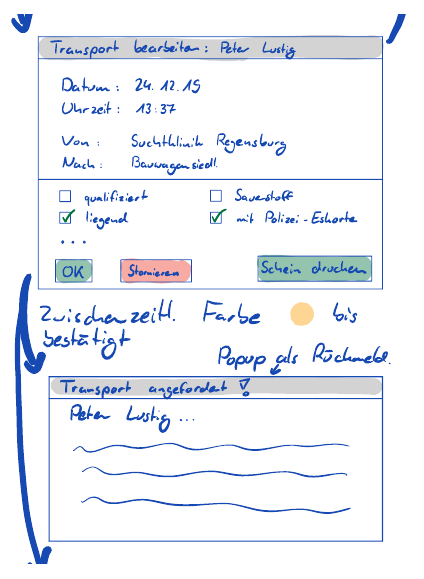 Transport bearbeiten: Peter Lustig
Datum: 24.12.15
Uhrzeit: 13:37
Von: Suchtklinik Regensburg
Nach: Bauwagensiedl.
qualifiziert
Sauerstoff
liegend
mit Polizei-Eskorte
...
OK
Stornieren
Schein drucken
Zwischenzeitl. Farbe bis
bestätigt
Popup als Rückmeld.
Transport angefordert !
Peter Lustig ...